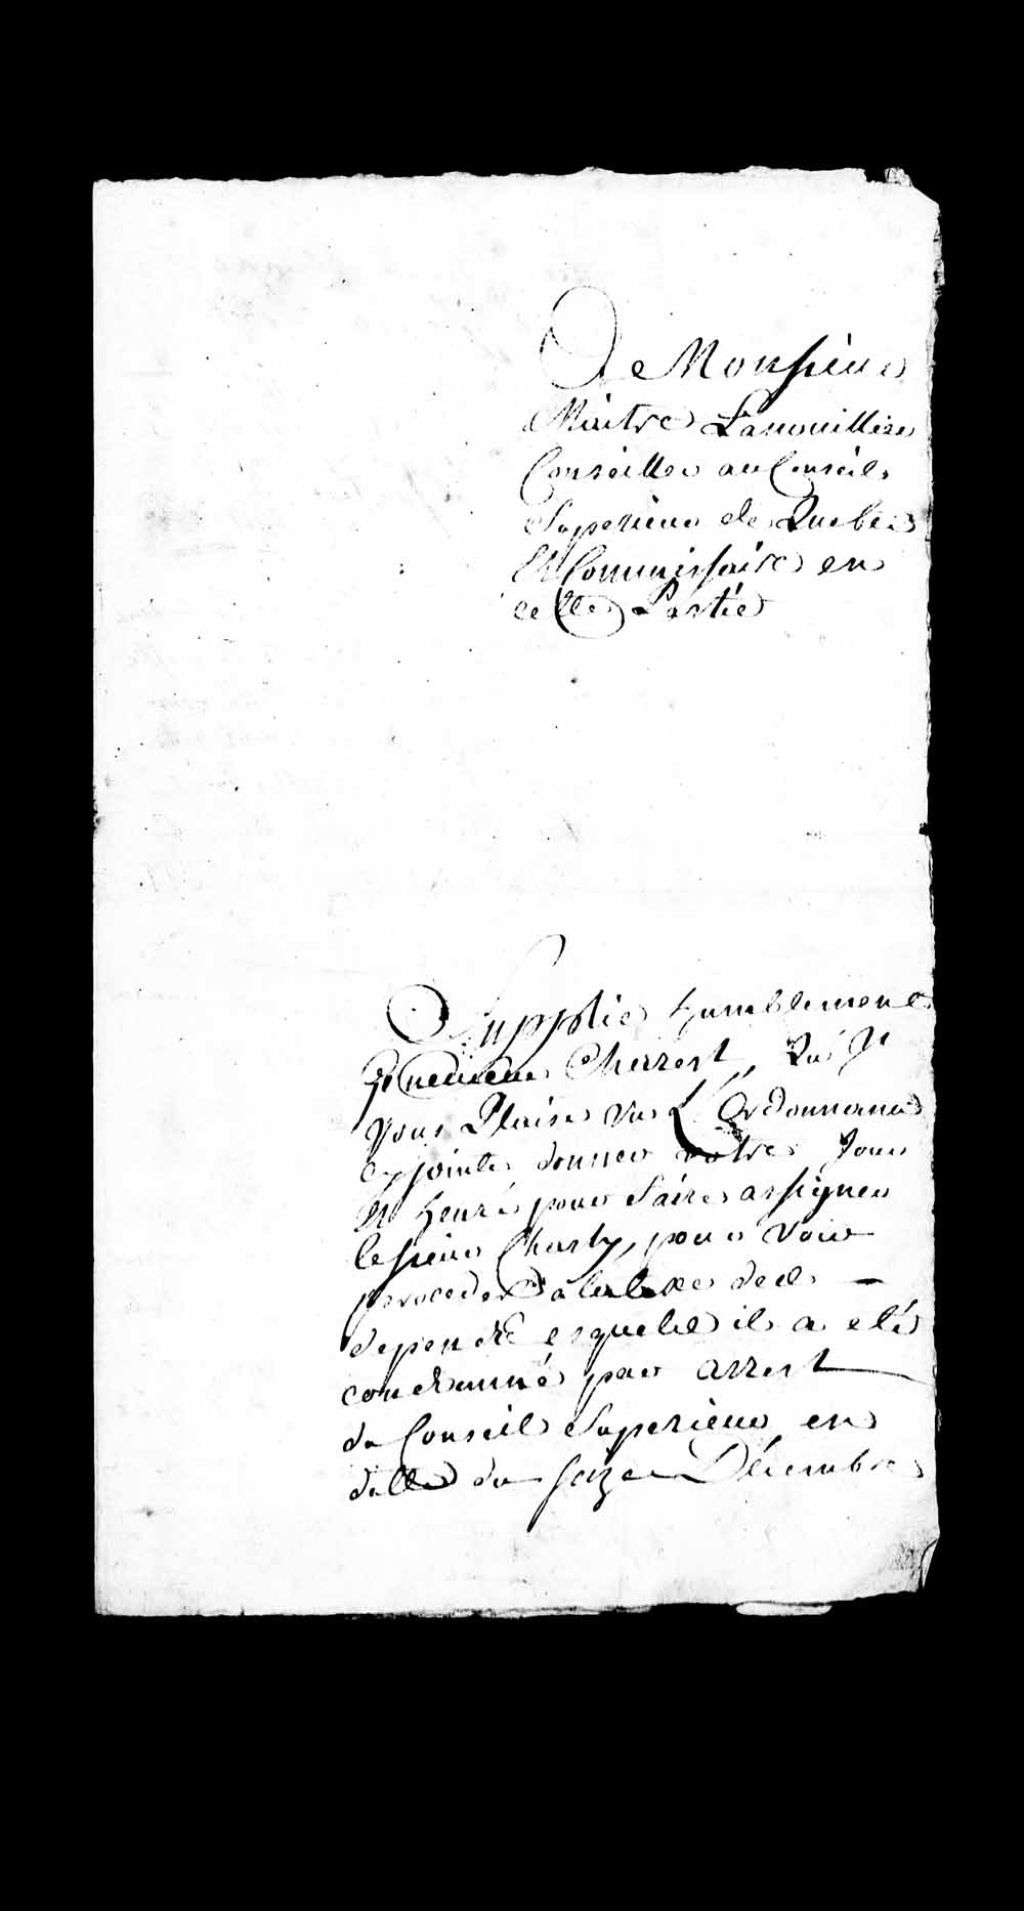 A Monsieur
Maitre Lanouillier
Conseiller au Conseil
Superieur de Quebec
Et Commissaire en
cette Partie
Supplie humblement
Cherrest, Qu'Il
vous Plaise vu L'Ordonnance
cy jointe donner votre Jour
Et heure pour faire assigner
le sieur Charly, pour voir
proceder à la taxe des
depens esquels il a eté
condamné par arrest
du Conseil Superieur en
datte du seize Décembre